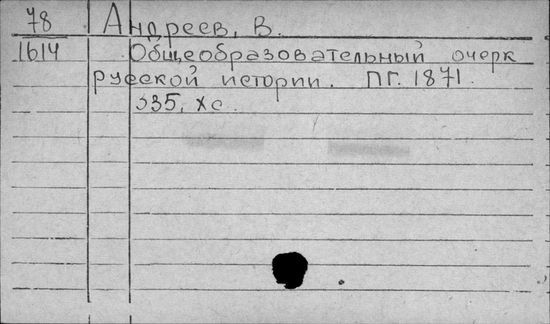 78 Андреев, В.
1614 Общеобразовательный очерк
русской истории. ПГ. 1871.
335, хс.